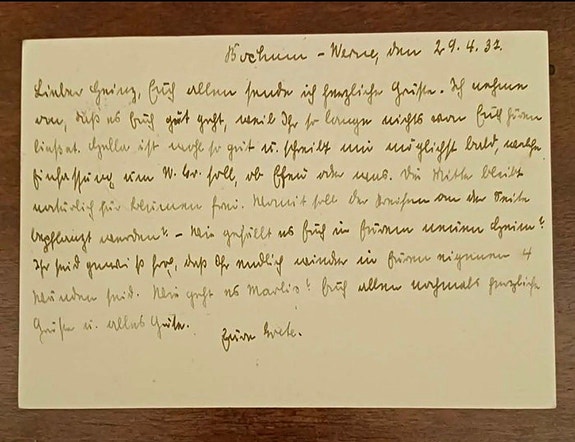 Bochum - Werne, den 29.4.32.
Lieber Heinz, Euch allen sende ich herzliche Grüße. Ich nehme
an, daß es Euch gut geht, weil Ihr so lange nichts von Euch hören
ließet. Hella ist wohl so gut u. schreibt mir möglichst bald, welche
Einfassung um W. Gr. soll, ob Efeu oder was. Die Mitte bleibt
natürlich für Blumen frei. Womit soll der Streifen an der Seite
bepflanzt werden? - Wie gefällt es Euch in Eurem neuen Heim?
Ihr seid gewiß froh, daß Ihr endlich wieder in Euren eigenen 4
Wänden seid. Wie geht es Marlis? Euch allen nochmals herzliche
Grüße u. alles Gute.
Eure Grete.